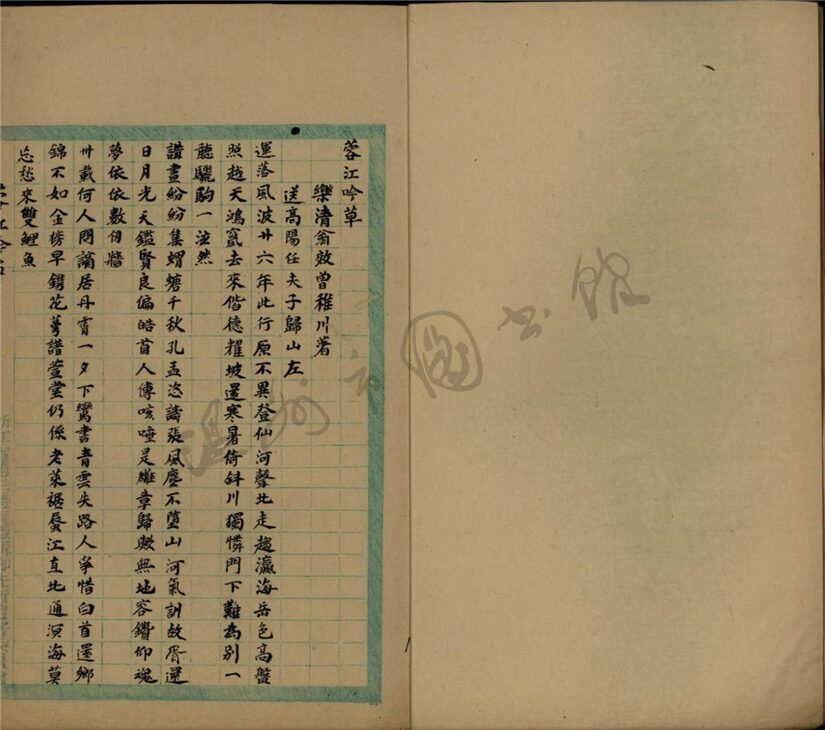 蓉江吟草
樂清翁效曾稚川著
送高陽任夫子歸山左
運落風波廿六年此行原不異登仙河聲北走趨瀛海岳色高盤
照越天鴻竄去來偕德耀坡還寒暑倚斜川獨憐門下難為別一
聽驪駒一泫然
讚畫紛紛集蜩螗千秋孔孟恣譸張風塵不墮山河氣訓故胥還
日月光天鑑賢良偏皓首人傳咳唾是雕章歸歟無地容鑽仰魂
夢依依數仞牆
卅載何人問謫居丹霄一夕下鸞書青雲失路人爭惜白首還鄉
錦不如金榜早鐫花萼譜萱堂仍係老萊裾蜃江直北通溟海莫
忘愁來雙鯉魚
溫州市圖書館